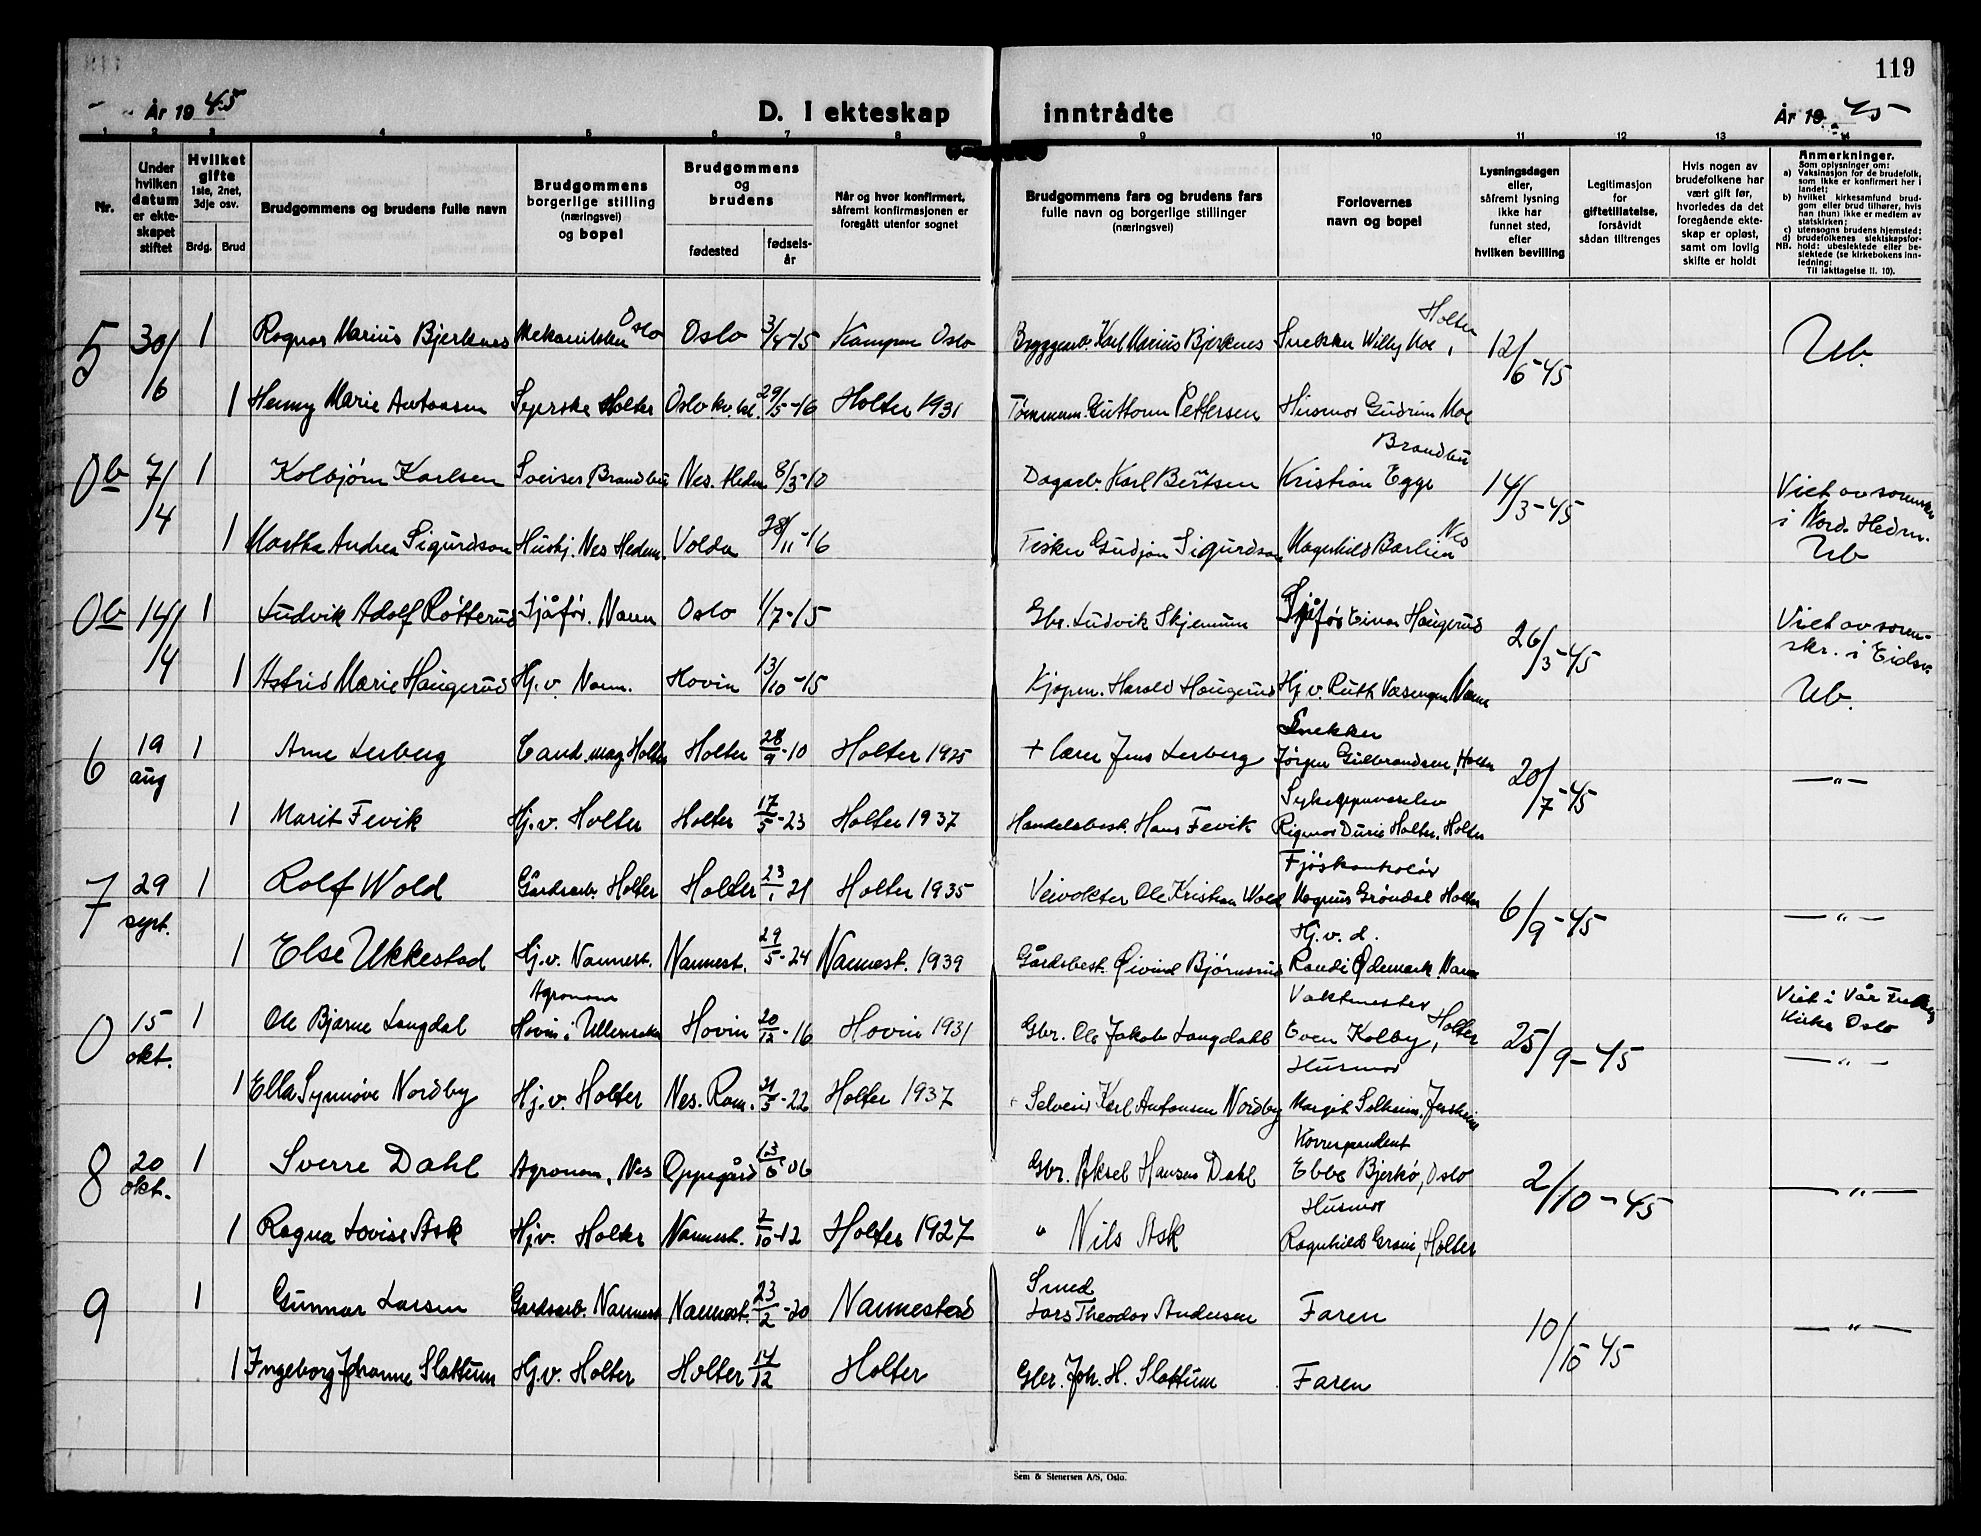 119
År 1945
D. I ekteskap inntrådte
År 1945
1 2 3 4 5 6 7 8 9 10 11 12 13 14
Nr.
Under hvilken datum er ekte-skapet stiftet
Hvilket gifte
1ste, 2net, 3dje osv.
Brdg. Brud
Brudgommens og brudens fulle navn
Brudgommens borgerlige stilling (næringsvei) og bopel
Brudgommens og brudens
fødested
fødsels-år
Når og hvor konfirmert, såfremt konfirmasjonen er foregått utenfor sognet
Brudgommens fars og brudens fars fulle navn og borgerlige stillinger (næringsvei)
Forlovernes navn og bopel
Lysningsdagen eller, såfremt lysning ikke har funnet sted, efter hvilken bevilling
Legitimasjon for giftetillatelse, forsåvidt sådan tiltrenges
Hvis nogen av brudefolkene har vært gift før, hvorledes da det foregående ekte-skap er opløst, samt om lovlig skifte er holdt
Anmerkninger.
Som oplysninger om:
a) Vaksinasjon for de brudefolk, som ikke er konfirmert her i landet;
b) hvilket kirkesamfund brud-gom eller brud tilhører, hvis han (hun) ikke er medlem av statskirken;
c) utensogns brudens hjemsted;
d) brudefolkenes slektskapsfor-hold: ubeslektede eller be-slektede (se kirkebokens inn-ledning:
NB.
Til iakttagelse II. 10).
5 30/6 1 Ragnar Marius Bjerknes Mekaniker Oslo Oslo 3/4-15 Kampen Oslo Karl Marius Bjerknes Snekker Willy Moe, Holter 12/6-45 Ub.
1 Henny Marie Antonsen Syerske Holter Oslo kv.kl. 29/5-16 Holter 1931 Tømmerm. Guttorm Pettersen Husmor Gudrun Moe
0b 7/4 1 Kolbjørn Karlsen Sveiser Brandbu Nes. Hedm 8/3-10 Dagarb. Karl Berntsen Kristian Egge Brandbu 14/3-45 Viet av sorenskr i Nord. Hedm.
1 Martha Andrea Sigurdson Hushj. Nes Hedm. Volda 28/11-16 Fisker Gudjon Sigurdson Magnhild Barlien Nes Ub
0b 14/4 1 Ludvik Adolf Røtterud Sjåfør. Nann Oslo 1/7-15 Gbr. Ludvik Skjennum Sjåfør Einar Haugerud 26/3-45 Viet av soren-skr. i Eidsv.
1 Astrid Marie Haugerud Hj.v. Nann. Hovin 13/10-15 Kjøpm. Harald Haugerud Hj.v. Ruth Vasengen Nann Ub.
6 19 aug 1 Arne Lerberg Cand.mag. Holter Holter 28/9-10 Holter 1925 + lærer Jens Lerberg Snekker Jørgen Gulbrandsen, Holter 20/7-45 —"—
1 Marit Fevik Hj.v. Holter Holter 17/5-23 Holter 1937 Handelsbest. Hans Fevik Rigmor Holter, Holter
7 29 sept. 1 Rolf Wold Gårdsarb. Holter Holter 23/1 21 Holter 1935 Veivokter Ole Kristian Wold Fjøskontrolør Magnus Grøndal Holter 6/9-45 —"—
1 Else Ukkestad Hj.v. Nannest. Nannest. 29/5-24 Nannest. 1939 Gårdsbest. Øivind Bjørnsrud Hj.v.d. Randi Ødemark Nann
0 15 okt. 1 Ole Bjarne Langdal Agronom Hovin i Ullensaker Hovin 20/12-16 Hovin 1931 Gbr. Ole Jakob Langdahl Vaktmester Even Kolby, Holter 25/9-45 Viet i Vår Frelsers Kirke Oslo —"—
1 Ella Synnøve Nordby Hj.v. Holter Nes. Rom. 31/5-22 Holter 1937 Selveier Karl Antonsen Nordby Husmor Margit Solheim, Jessheim
8 20 okt. 1 Sverre Dahl Agronom, Nes Oppegård 13/6-06 Gbr. Aksel Hansen Dahl Korrespondent Ebbe Bjerkø, Oslo 2/10-45 —"—
1 Ragna Lovise Ask Hj.v. Holter Nannest. 2/10-12 Holter 1927 " Nils Ask Husmor Ragnhild Grani, Holter
9 1 Gunnar Larsen Gardsarb. Nannest Nannest. 23/2-20 Nannestad Smed Lars Theodor Andersen Faren 10/10 45 —"—
1 Ingeborg Johanne Slattum Hj.v. Holter Holter 14/12 Holter Gbr. Joh. H. Slattum Faren
Sem & Stenersen A/S, Oslo.